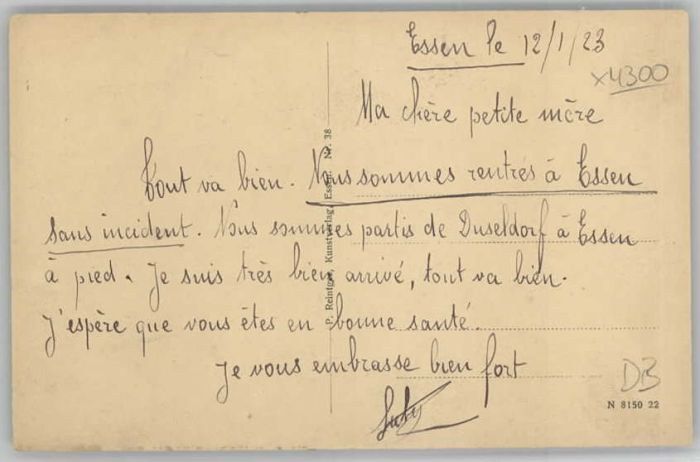 Essen le 12/1/23
x4300
Ma chère petite mère
Tout va bien. Nous sommes rentrés à Essen
sans incident. Nous sommes partis de Duseldorf à Essen
à pied. Je suis très bien arrivé, tout va bien.
J'espère que vous êtes en bonne santé.
Je vous embrasse bien fort
DB
N 8150 22
P. Reintges, Kunstverlag, Essen. Nr. 38